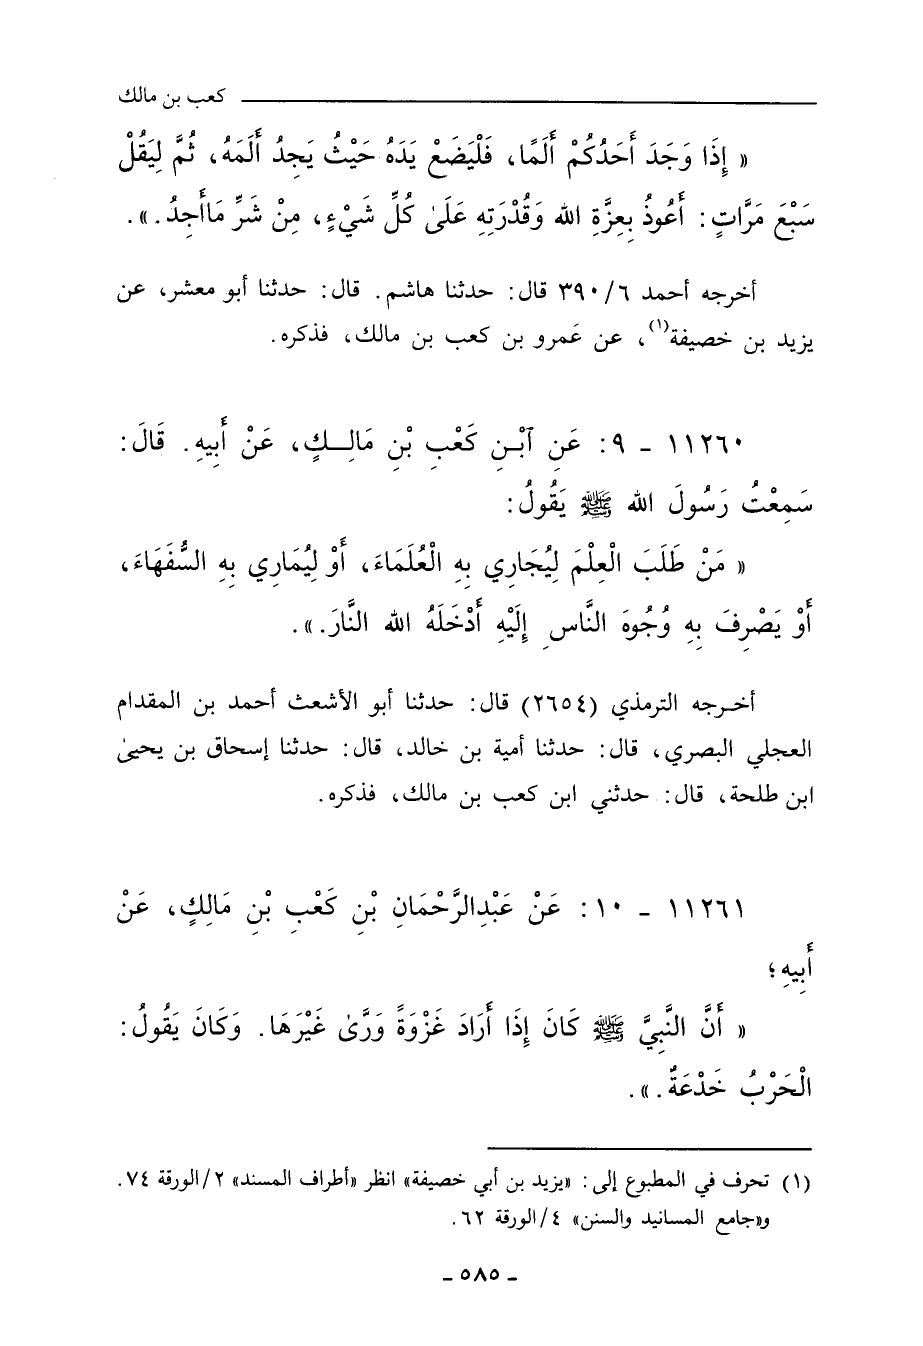 كعب بن مالك
« إِذَا وَجَدَ أَحَدُكُمْ أَلَمًا، فَلْيَضَعْ يَدَهُ حَيْثُ يَجِدُ أَلَمَهُ، ثُمَّ لِيَقُلْ
سَبْعَ مَرَّاتٍ: أَعُوذُ بِعِزَّةِ الله وَقُدْرَتِهِ عَلَىٰ كُلِّ شَيْءٍ، مِنْ شَرِّ مَاأَجِدُ.».
أخرجه أحمد ٦/ ٣٩٠ قال: حدثنا هاشم. قال: حدثنا أبو معشر، عن
يزيد بن خصيفة(١)، عن عَمرو بن كعب بن مالك، فذكره.
١١٢٦٠ - ٩: عَنِ ٱبْنِ كَعْبِ بْنِ مَالِكٍ، عَنْ أَبِيهِ. قَالَ:
سَمِعْتُ رَسُولَ الله ﷺ يَقُولُ:
« مَنْ طَلَبَ الْعِلْمَ لِيُجَارِي بِهِ الْعُلَمَاءَ، أَوْ لِيُمَارِي بِهِ السُّفَهَاءَ،
أَوْ يَصْرِفَ بِهِ وُجُوهَ النَّاسِ إِلَيْهِ أَدْخَلَهُ الله النَّارَ.».
أخرجه الترمذي (٢٦٥٤) قال: حدثنا أبو الأشعث أحمد بن المقدام
العجلي البصري، قال: حدثنا أمية بن خالد، قال: حدثنا إسحاق بن يحيىٰ
ابن طلحة، قال: حدثني ابن كعب بن مالك، فذكره.
١١٢٦١ - ١٠: عَنْ عَبْدِالرَّحْمَانِ بْنِ كَعْبِ بْنِ مَالِكٍ، عَنْ
أَبِيهِ؛
« أَنَّ النَّبِيَّ ﷺ كَانَ إِذَا أَرَادَ غَزْوَةً وَرَّىٰ غَيْرَهَا. وَكَانَ يَقُولُ:
الْحَرْبُ خَدْعَةٌ.».
(١) تحرف في المطبوع إلى: «يزيد بن أبي خصيفة» انظر «أطراف المسند» ٢/الورقة ٧٤.
و«جامع المسانيد والسنن» ٤/الورقة ٦٢.
- ٥٨٥ -